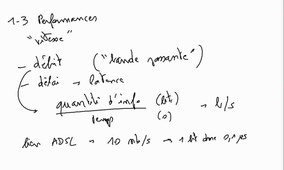 1-3 Performances
"vitesse"
- débit ("bande passante")
- délai → latence
quantité d'info (bit) → b/s
temps (s)
lien ADSL → 10 mb/s → 1 bit donc 0,1 µs